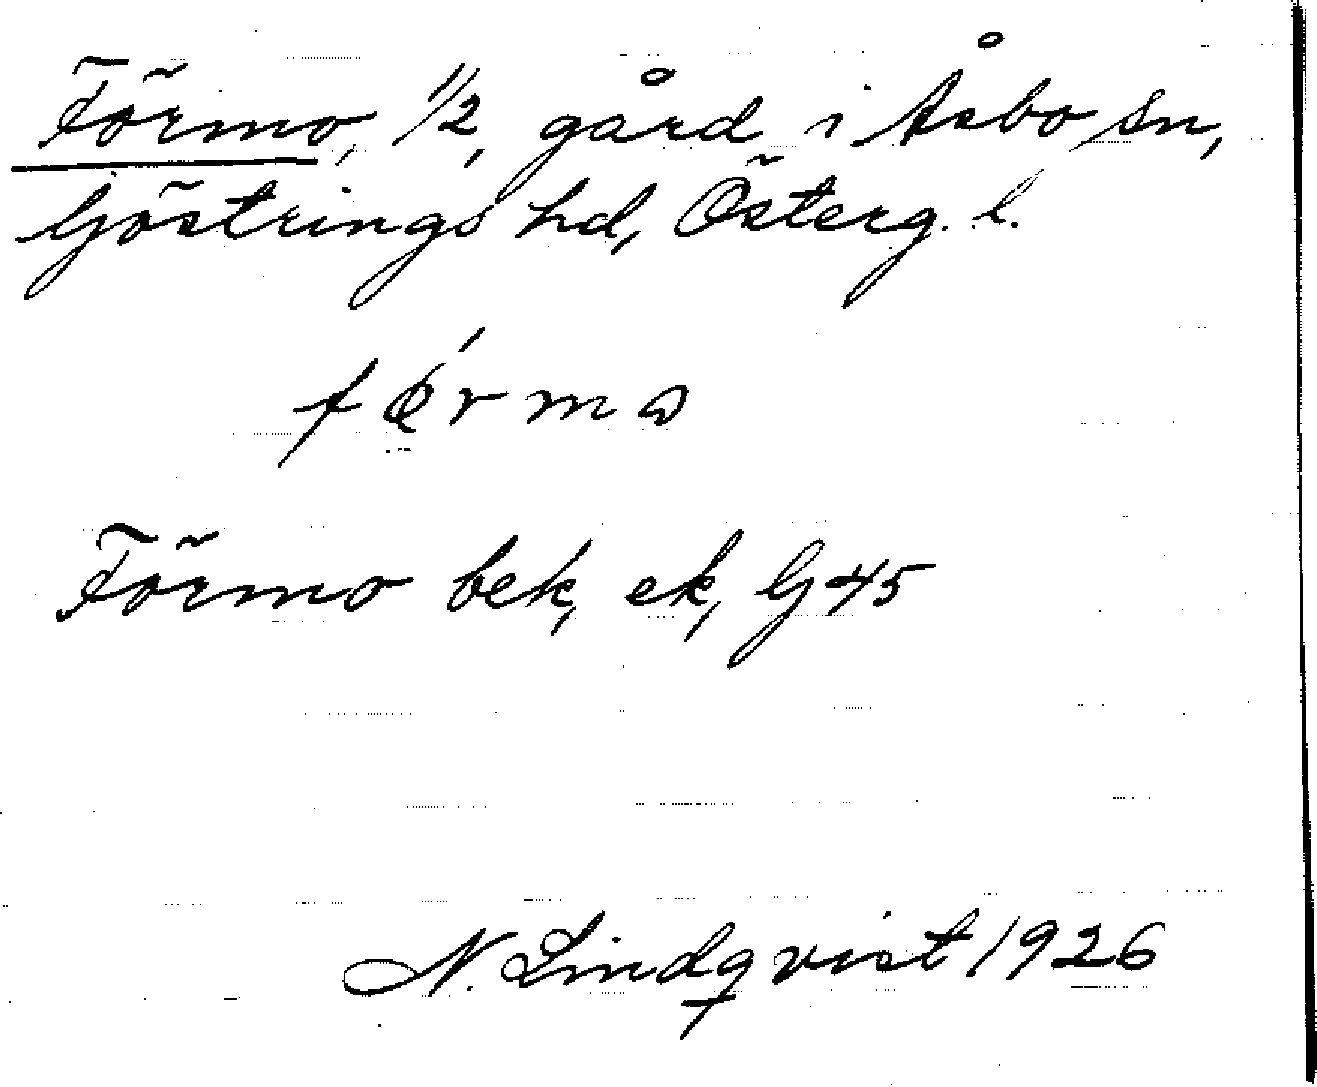 Förmo, 1/2, gård i Åsbo sn,
Göstrings hd, Österg. l.
Förmo bek, ek, G 45
N. Lindqvist 1926